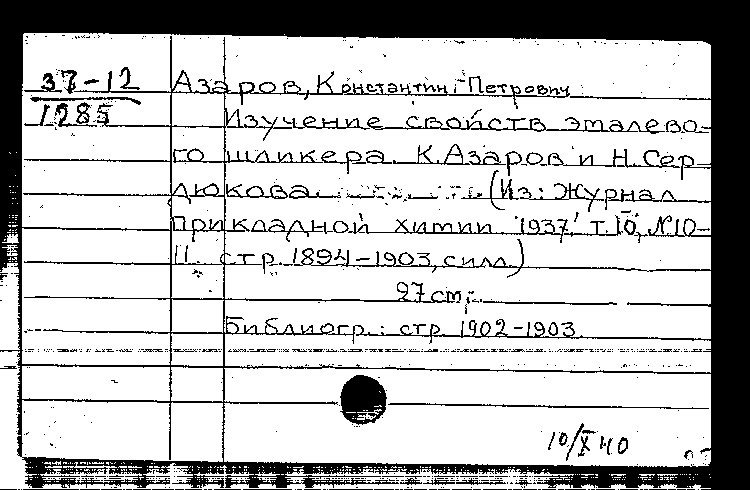 37-12
1285
Азаров, Константин Петрович
Изучение свойств эмалево-
го шликера. К. Азаров и Н. Сер
дюкова. (Из: Журнал
прикладной химии 1937. т. 10, №10-
11. стр. 1894-1903, с илл.)
27 см.
Библиогр.: стр 1902-1903
10/X 40